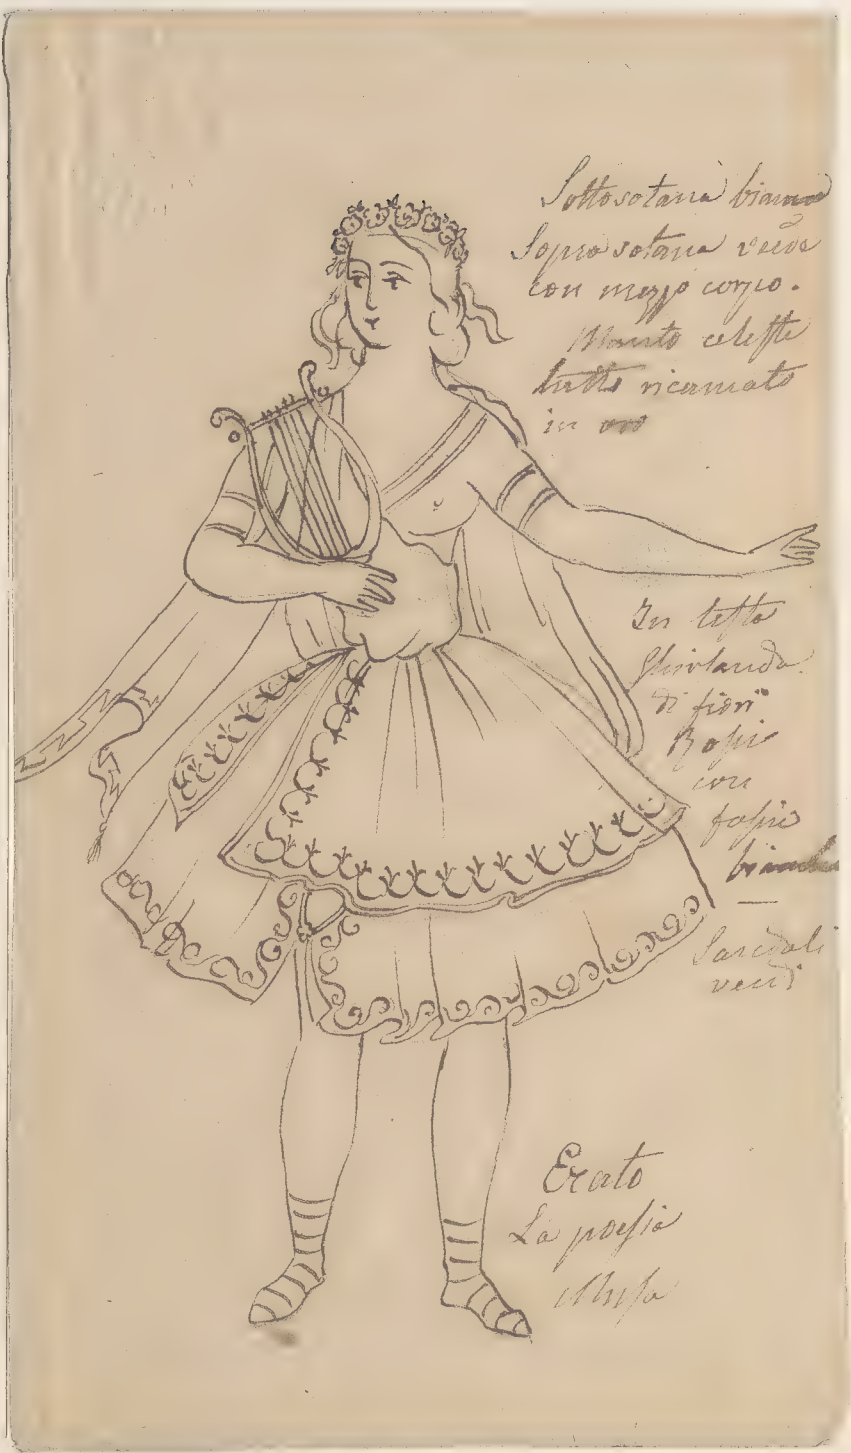 Sottosotana bianca
Sopra sotana verde
con mezzo corpo.
Manto celeste
tutto ricamato
in oro
In testa
Ghirlanda
di fiori
Rossi
con
fascie
bianche
Sandali
verdi
Erato
La poesia
Musa